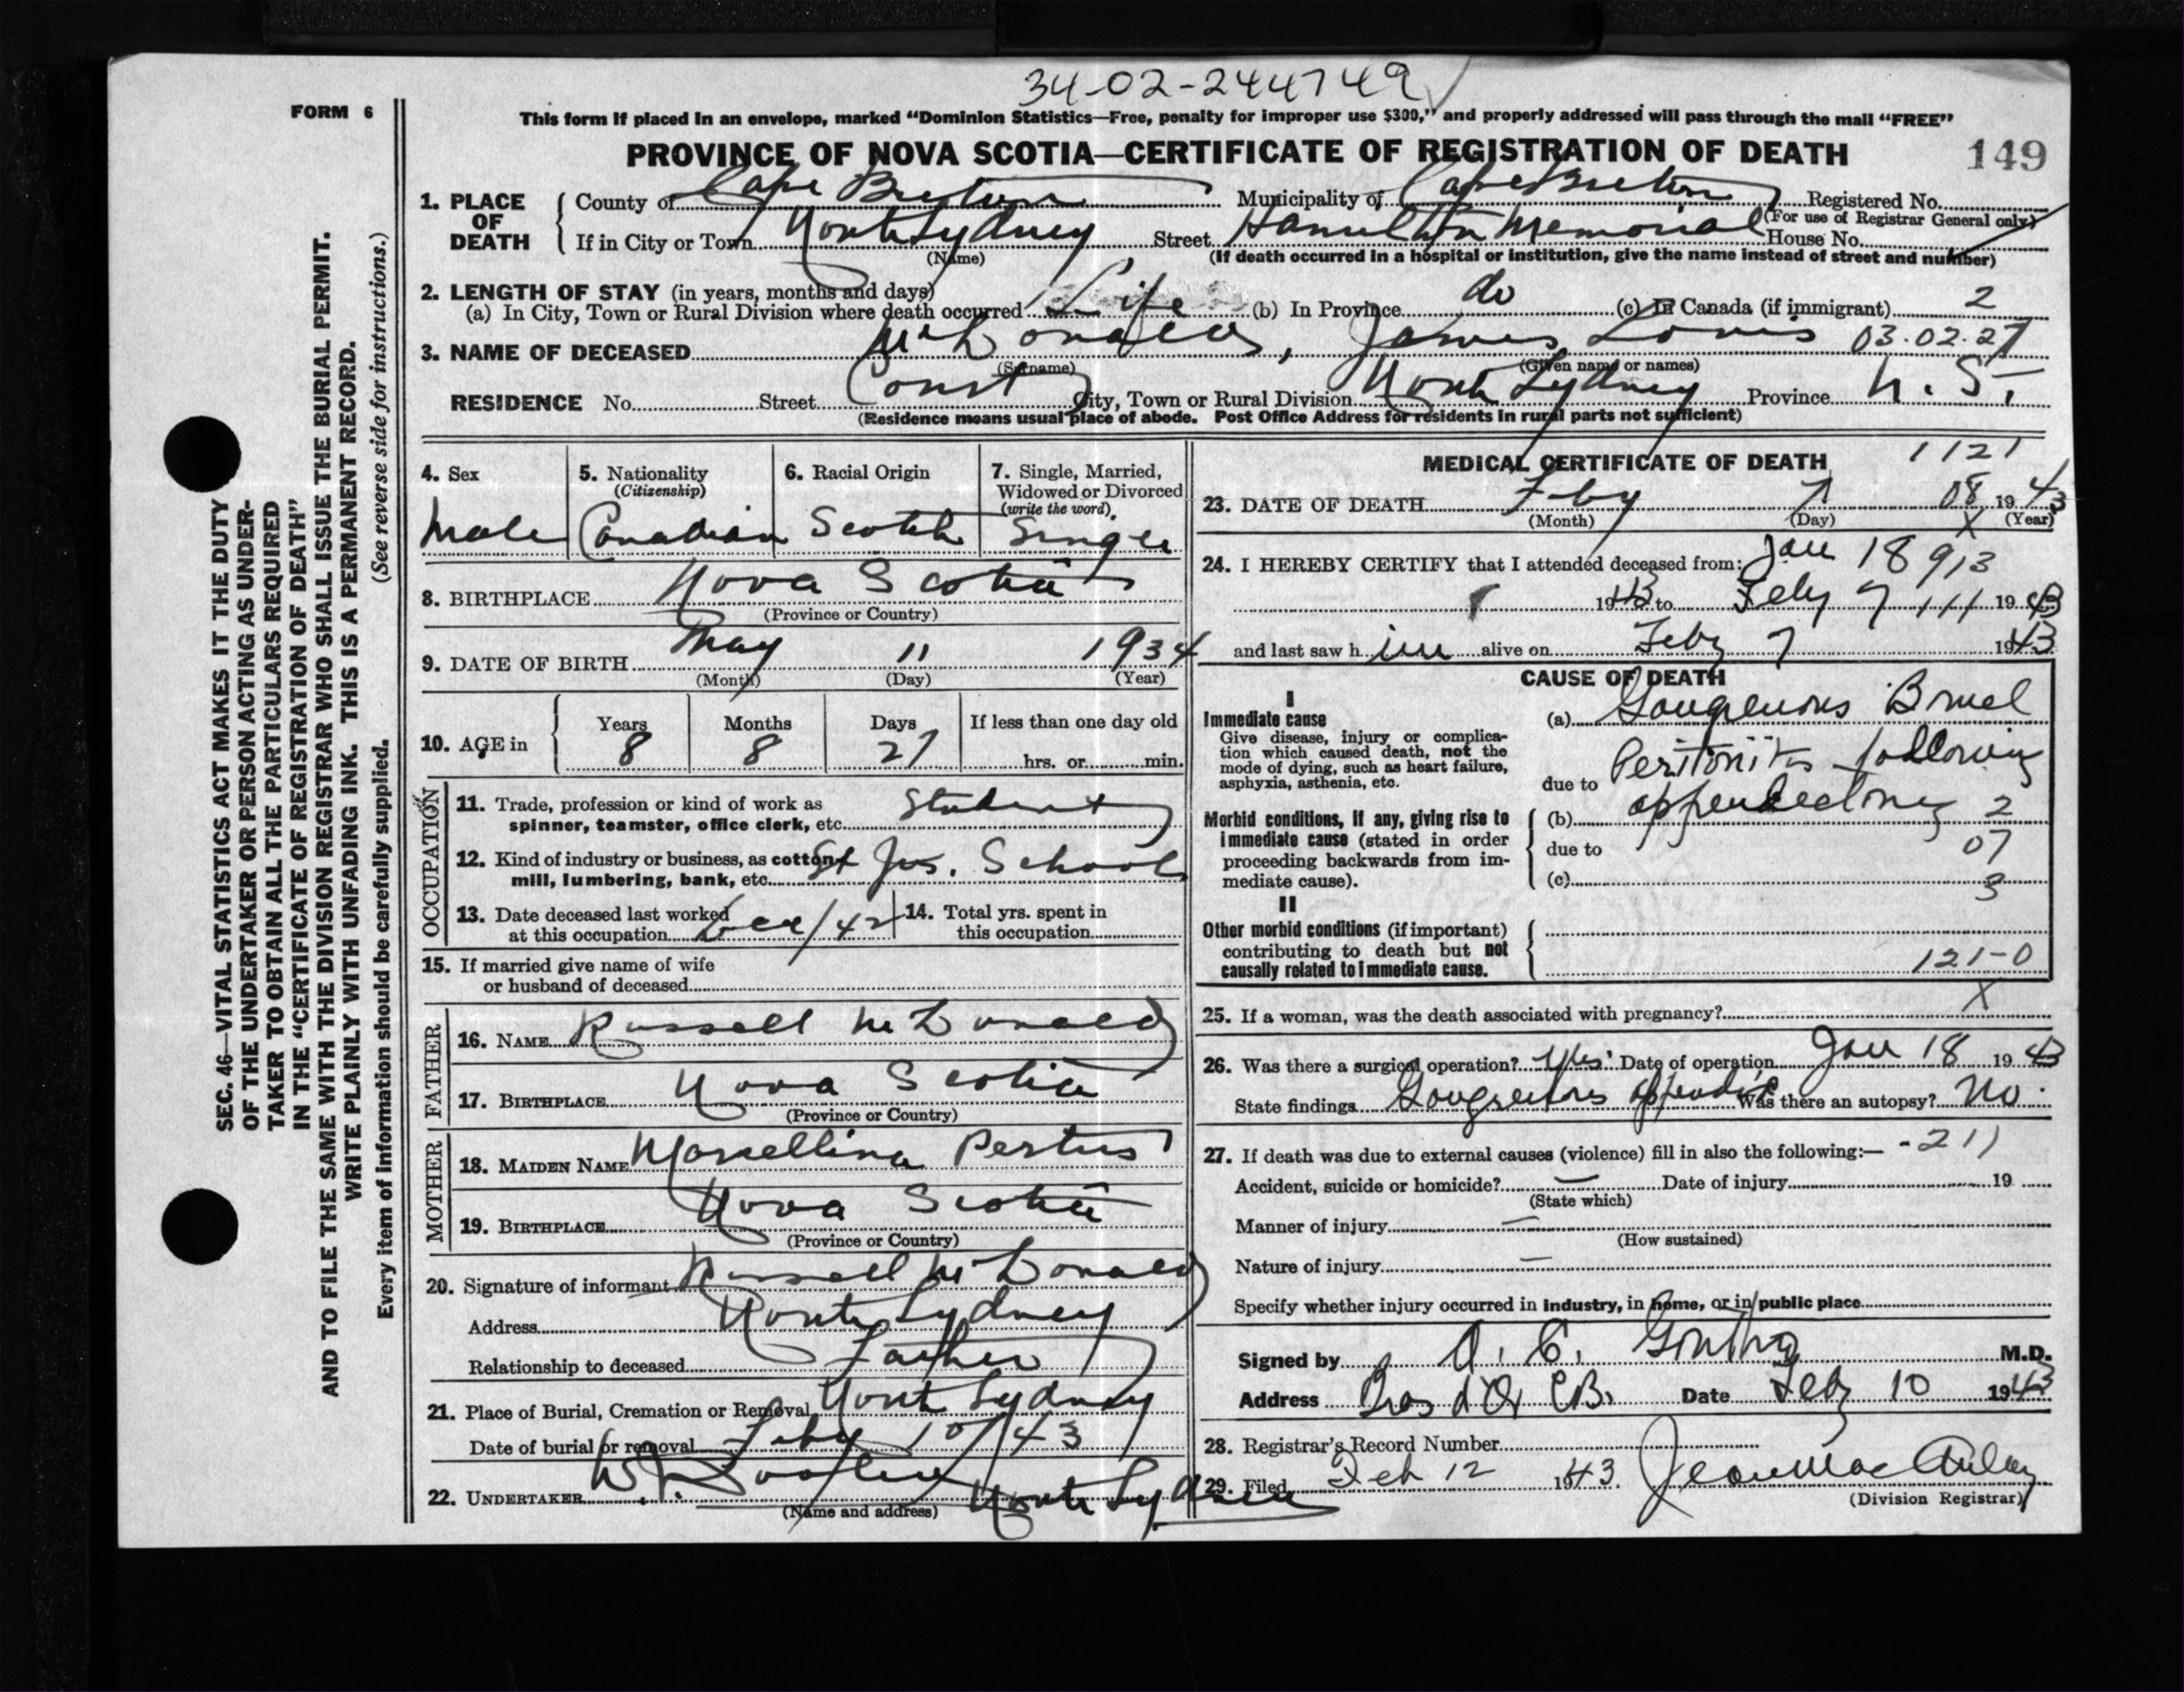 34-02-244749
FORM 6
This form if placed in an envelope, marked "Dominion Statistics—Free, penalty for improper use $300," and properly addressed will pass through the mail "FREE"
PROVINCE OF NOVA SCOTIA—CERTIFICATE OF REGISTRATION OF DEATH 149
1. PLACE OF DEATH County of Cape Breton Municipality of Cape Breton Registered No.
(For use of Registrar General only)
If in City or Town North Sydney Street Hamilton Memorial House No.
(Name) (If death occurred in a hospital or institution, give the name instead of street and number)
2. LENGTH OF STAY (in years, months and days)
(a) In City, Town or Rural Division where death occurred Life (b) In Province do (c) In Canada (if immigrant) 2
3. NAME OF DECEASED McDonald, James Louis 03.02.27
(Surname) (Given name or names)
RESIDENCE No. Street Court City, Town or Rural Division North Sydney Province N.S.
(Residence means usual place of abode. Post Office Address for residents in rural parts not sufficient)
4. Sex Male
5. Nationality (Citizenship) Canadian
6. Racial Origin Scotch
7. Single, Married, Widowed or Divorced (write the word) Single
8. BIRTHPLACE Nova Scotia
(Province or Country)
9. DATE OF BIRTH May 11 1934
(Month) (Day) (Year)
10. AGE in Years 8 Months 8 Days 27 If less than one day old hrs. or min.
OCCUPATION
11. Trade, profession or kind of work as spinner, teamster, office clerk, etc. Student
12. Kind of industry or business, as cotton mill, lumbering, bank, etc. St Jos. School
13. Date deceased last worked at this occupation Dec/42
14. Total yrs. spent in this occupation
15. If married give name of wife or husband of deceased
FATHER
16. NAME Russell McDonald
17. BIRTHPLACE Nova Scotia
(Province or Country)
MOTHER
18. MAIDEN NAME Marcellina Pertus
19. BIRTHPLACE Nova Scotia
(Province or Country)
20. Signature of informant Russell McDonald
Address North Sydney
Relationship to deceased Father
21. Place of Burial, Cremation or Removal North Sydney
Date of burial or removal Feby 10/43
22. UNDERTAKER W.J. North Sydney
(Name and address)
MEDICAL CERTIFICATE OF DEATH 1121
23. DATE OF DEATH Feby 7 08 1943
(Month) (Day) X (Year)
24. I HEREBY CERTIFY that I attended deceased from: Jan 18 913
1943 to Feby 7 111 1943
and last saw h im alive on Feby 7 1943
CAUSE OF DEATH
I
Immediate cause
Give disease, injury or complication which caused death, not the mode of dying, such as heart failure, asphyxia, asthenia, etc.
(a) Gangrenous Bowel
due to Peritonitis following
Morbid conditions, if any, giving rise to immediate cause (stated in order proceeding backwards from immediate cause).
(b) appendectomy 2
due to 07
(c) 3
II
Other morbid conditions (if important) contributing to death but not causally related to immediate cause.
121-0
25. If a woman, was the death associated with pregnancy? X
26. Was there a surgical operation? Yes. Date of operation Jan 18 1943
State findings Gangrenous appendix Was there an autopsy? No.
27. If death was due to external causes (violence) fill in also the following:— -211
Accident, suicide or homicide? — Date of injury 19
(State which)
Manner of injury —
(How sustained)
Nature of injury —
Specify whether injury occurred in industry, in home, or in public place
Signed by M.D.
Address Bras d'Or C.B. Date Feby 10 1943
28. Registrar's Record Number
29. Filed Feb 12 1943. Jean MacAulay
(Division Registrar)
SEC. 46—VITAL STATISTICS ACT MAKES IT THE DUTY
OF THE UNDERTAKER OR PERSON ACTING AS UNDER-
TAKER TO OBTAIN ALL THE PARTICULARS REQUIRED
IN THE "CERTIFICATE OF REGISTRATION OF DEATH"
AND TO FILE THE SAME WITH THE DIVISION REGISTRAR WHO SHALL ISSUE THE BURIAL PERMIT.
WRITE PLAINLY WITH UNFADING INK. THIS IS A PERMANENT RECORD.
Every item of information should be carefully supplied. (See reverse side for instructions.)